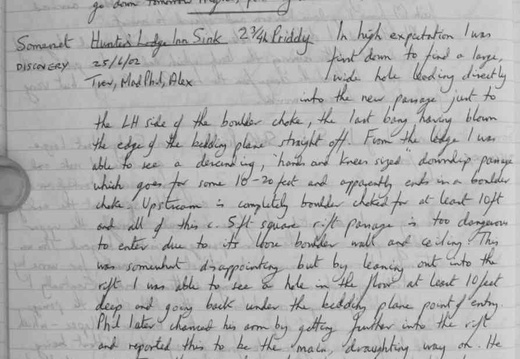 go down tomorrow
Somerset Hunters Lodge Inn Sink 2¾h Priddy In high expectation I was
DISCOVERY 25/6/02 first down to find a large,
Trev, MadPhil, Alex wide hole leading directly
into the new passage just to
the LH side of the boulder choke, the last bang having blown
the edge of the bedding plane straight off. From the ledge I was
able to see a descending, 'hands and knees sized' downdip passage
which goes for some 10-20 feet and apparently ends in a boulder
choke. Upstream is completely boulder choked for at least 10ft
and all of this c. 5ft square rift passage is too dangerous
to enter due to its loose boulder wall and ceiling. This
was somewhat disappointing but by leaning out into the
rift I was able to see a hole in the floor at least 10 feet
deep and going back under the bedding plane point of entry.
Phil later chanced his arm by getting further into the rift
and reported this to be the main, draughting way on. He